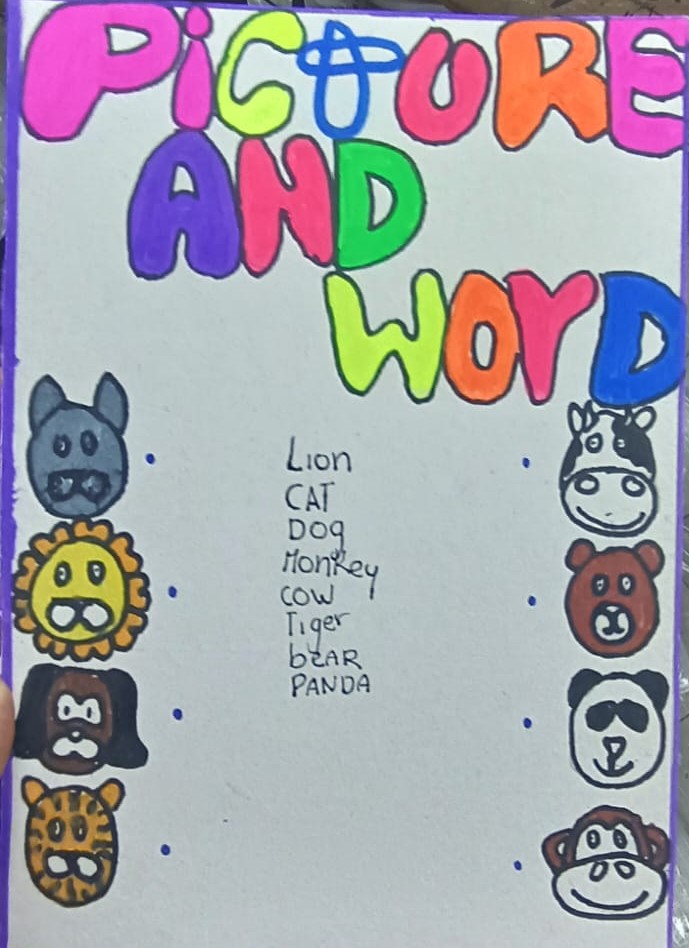 PiCtURE
AND
WOrD
Lion
CAT
Dog
Monkey
cow
Tiger
bEAR
PANDA